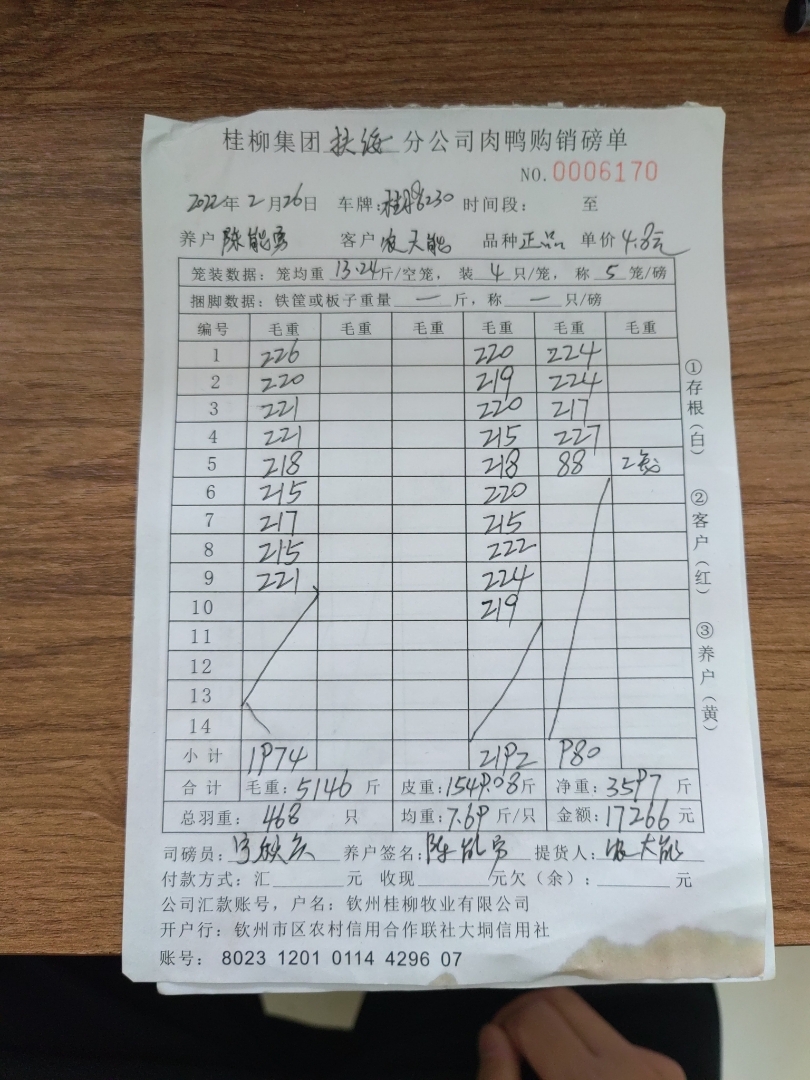 桂柳集团扶绥分公司肉鸭购销磅单
NO. 0006170
2022年2月26日 车牌: 时间段: 至
养户 陈能勇 客户 农天能 品种 正品 单价 4.8元
笼装数据: 笼均重 13.24 斤/空笼, 装 4 只/笼, 称 5 笼/磅
捆脚数据: 铁筐或板子重量 — 斤, 称 — 只/磅
编号 毛重 毛重 毛重 毛重 毛重 毛重
1 226 220 224
2 220 219 224
3 221 220 217
4 221 215 227
5 218 218 88 2笼
6 215 220
7 217 215
8 215 222
9 221 224
10 219
11
12
13
14
小计 1974 2192 980
合计 毛重: 5146 斤 皮重: 1549.08斤 净重: 3597 斤
总羽重: 468 只 均重: 7.69 斤/只 金额: 17266 元
司磅员: 养户签名: 陈能勇 提货人: 农天能
付款方式: 汇 元 收现 元欠(余): 元
公司汇款账号, 户名: 钦州桂柳牧业有限公司
开户行: 钦州市区农村信用合作联社大垌信用社
账号: 8023 1201 0114 4296 07
①存根(白)
②客户(红)
③养户(黄)